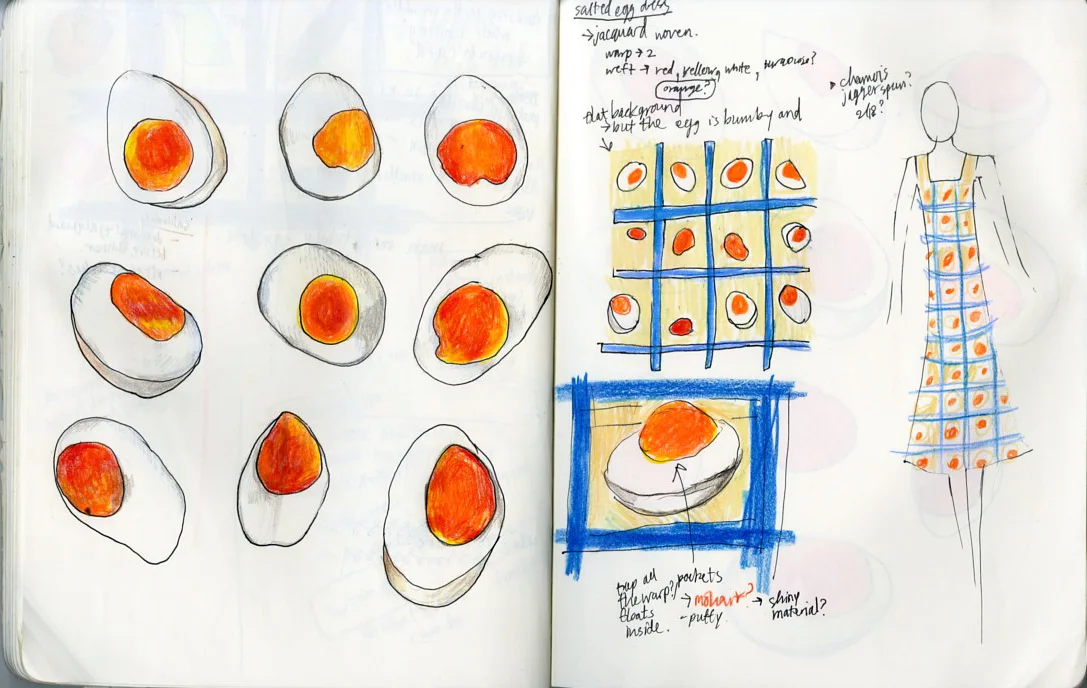 salted egg dress
→jacquard woven.
warp → 2
weft → red, yellow, white, turquoise?
orange?
flat background
→but the egg is bumby and
▸ chamois
jaggerspun?
2/8?
trap all
the warp?
floats
inside.
pockets
→ mohair? → shiny
material?
- puffy